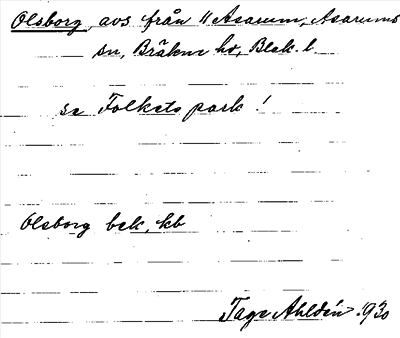 Olsborg, avs från 4 Asarum, Asarums
sn, Bräkne hd, Blek. l.
se Folkets park!
Olsborg bek, kb
Tage Ahldén 1930